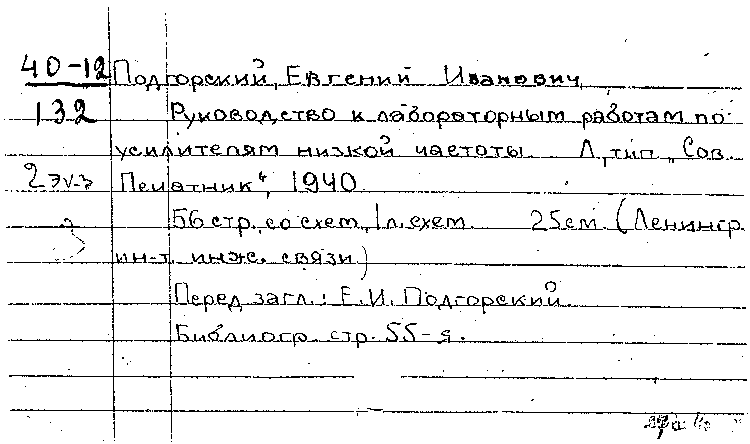 40-12 Подгорский, Евгений Иванович
132 Руководство к лабораторным работам по
усилителям низкой частоты. Л, тип. „Сов.
2 экз Печатник“, 1940.
56 стр. со схем, 1 л. схем. 25 см. (Ленингр.
ин-т. инж. связи)
Перед загл.: Е. И. Подгорский.
Библиогр. стр. 55-я.